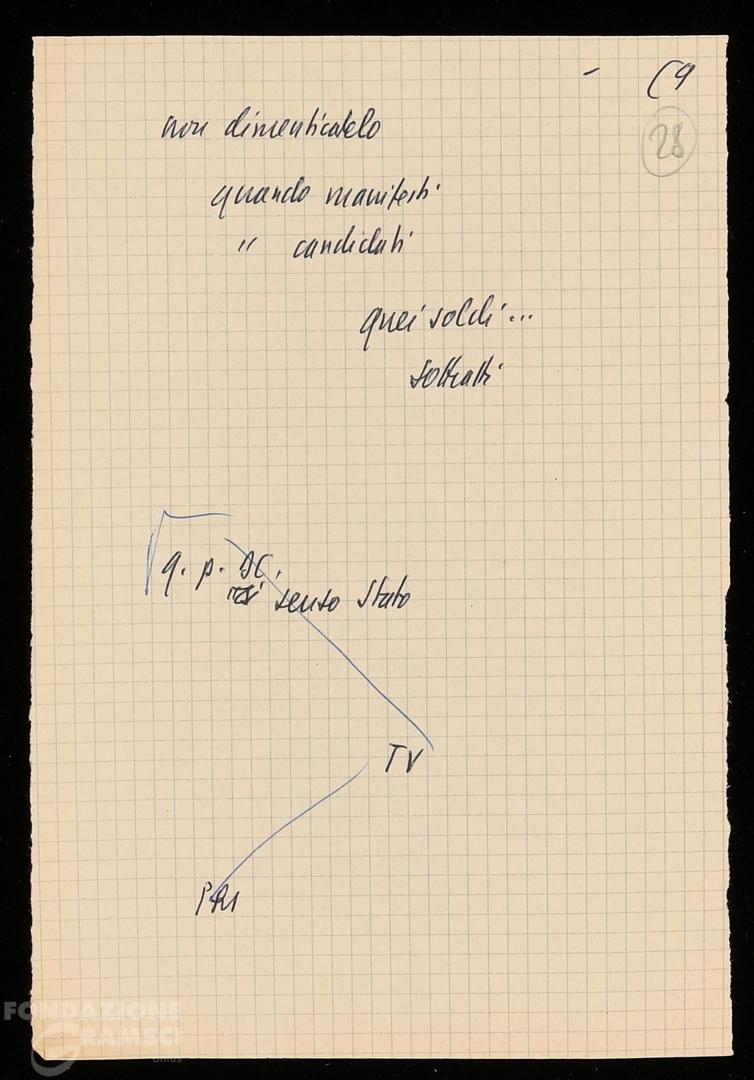 - C9
28
non dimenticatelo
quando manifesti
" candidati
quei soldi...
sottratti
q. p. DC.
senso Stato
TV
PRI
FONDAZIONE
GRAMSCI
onlus